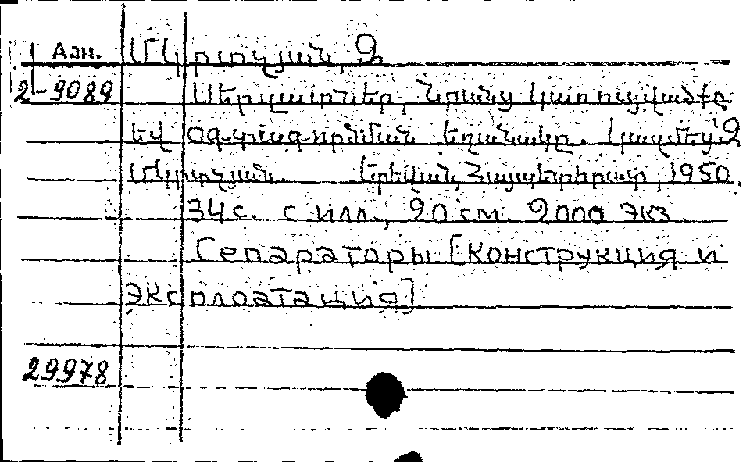 Ազն. Մկրտչյան, Զ
2-9089 Սերպարտներ, նրանց կառուցվածքը
եվ օգտագործման եղանակը. Կազմեց՝ Զ
Մկրտչյան. Երևան, Հայպետհրատ, 1950.
34 с. с илл., 20 см 2000 экз
Сепараторы [Конструкция и
эксплоатация]
29978